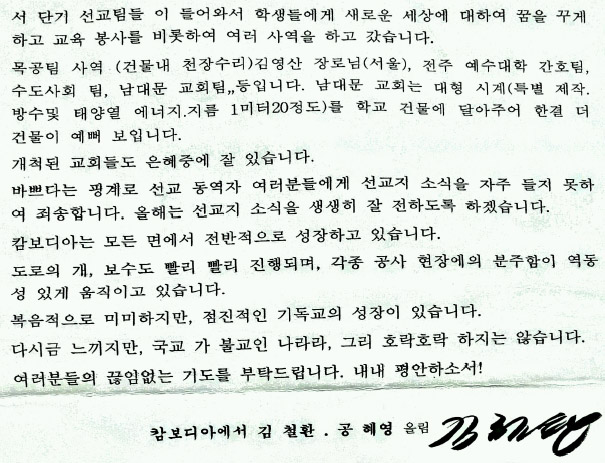 서 단기 선교팀들 이 들어와서 학생들에게 새로운 세상에 대하여 꿈을 꾸게
하고 교육 봉사를 비롯하여 여러 사역을 하고 갔습니다.
목공팀 사역 (건물내 천장수리)김영산 장로님(서울), 전주 예수대학 간호팀,
수도사회 팀, 남대문 교회팀,,등입니다. 남대문 교회는 대형 시계(특별 제작.
방수및 태양열 에너지.지름 1미터20정도)를 학교 건물에 달아주어 한결 더
건물이 예뻐 보입니다.
개척된 교회들도 은혜중에 잘 있습니다.
바쁘다는 핑계로 선교 동역자 여러분들에게 선교지 소식을 자주 들지 못하
여 죄송합니다. 올해는 선교지 소식을 생생히 잘 전하도록 하겠습니다.
캄보디아는 모든 면에서 전반적으로 성장하고 있습니다.
도로의 개, 보수도 빨리 빨리 진행되며, 각종 공사 현장에의 분주함이 역동
성 있게 움직이고 있습니다.
복음적으로 미미하지만, 점진적인 기독교의 성장이 있습니다.
다시금 느끼지만, 국교 가 불교인 나라라, 그리 호락호락 하지는 않습니다.
여러분들의 끊임없는 기도를 부탁드립니다. 내내 평안하소서!
캄보디아에서 김 철환 . 공 혜영 올림